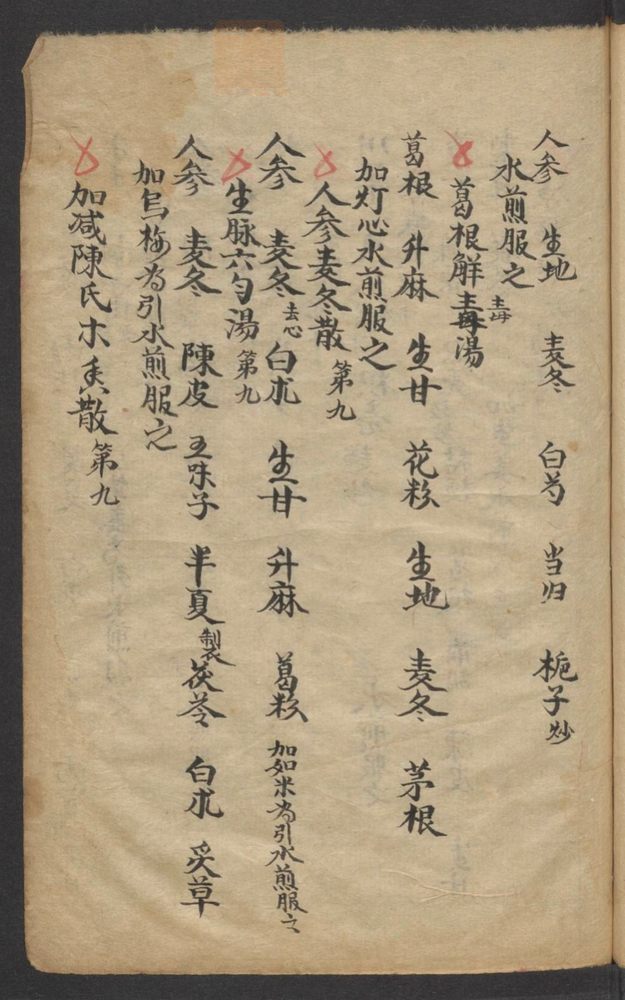 人参 生地 麦冬 白芍 当归 栀子炒
水煎服之
葛根解毒湯 毒
葛根 升麻 生甘 花粉 生地 麦冬 茅根
加灯心水煎服之
人参麦冬散 第九
人参 麦冬去心 白朮 生甘 升麻 葛粉 加如米为引水煎服之
生脉六匀湯 第九
人参 麦冬 陳皮 五味子 半夏製 茯苓 白朮 炙草
加烏梅为引水煎服之
加减陳氏木香散 第九